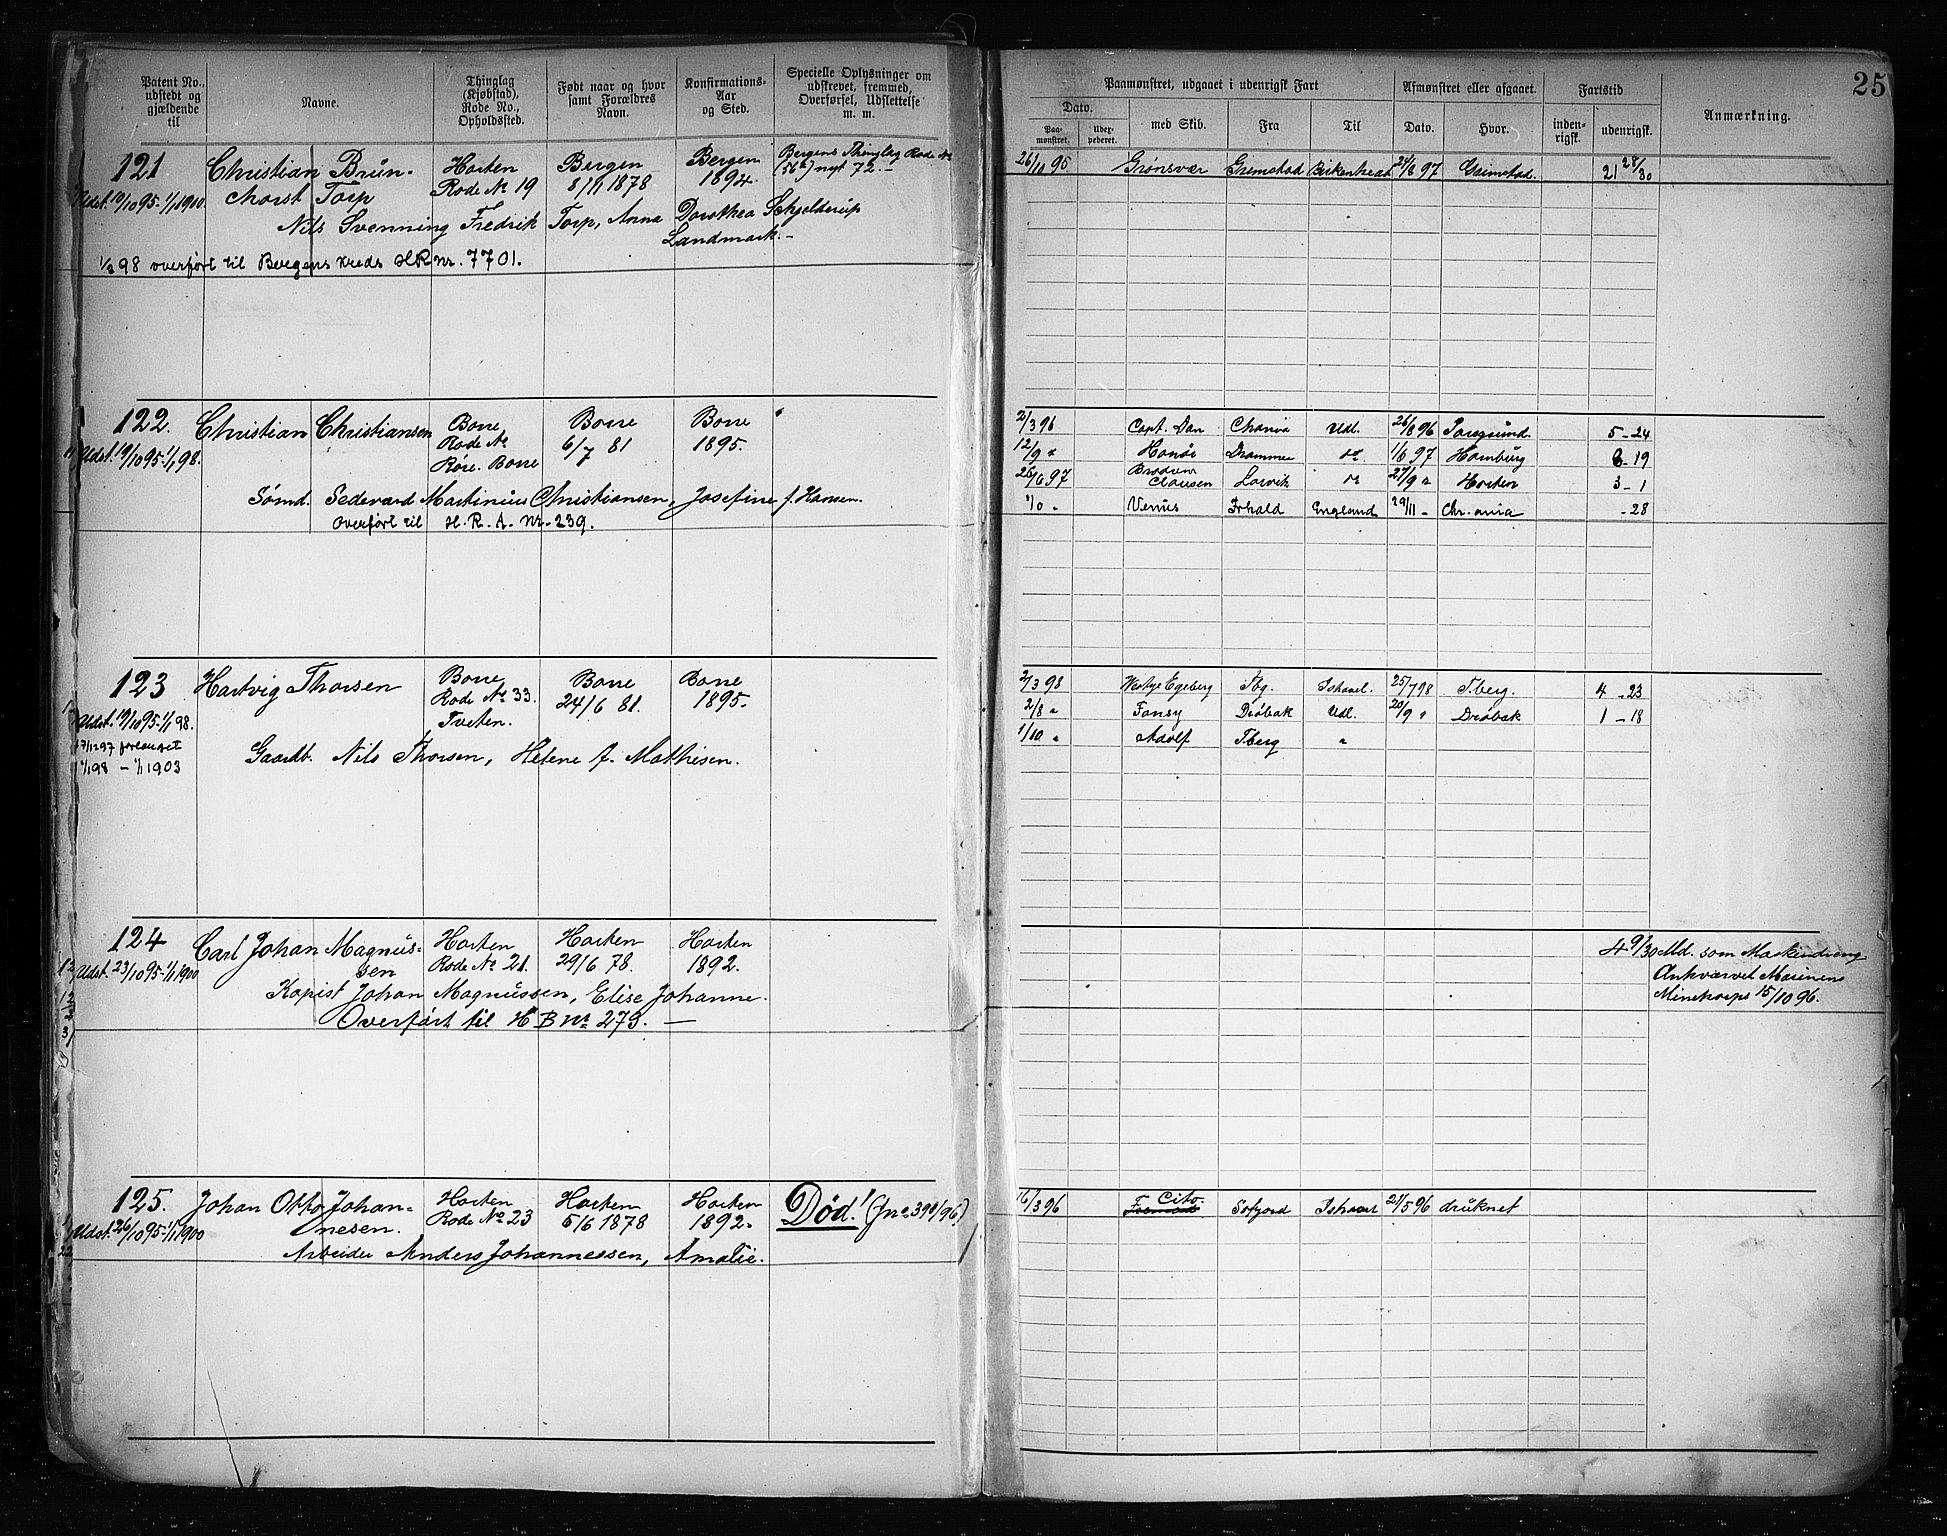 Patent No., udstedt og gjældende til
Navne.
Thinglag (Kjøbstad), Rode No., Opholdssted.
Født naar og hvor samt Forældres Navn.
Konfirmations-Aar og Sted.
Specielle Oplysninger om udskrevet, fremmed, Overførsel, Udslettelse m. m.
Paamønstret, udgaaet i udenrigsk Fart
Afmønstret eller afgaaet.
Fartstid
Anmærkning.
25
Dato.
Paa-mønstret.
med Skib.
Fra
Til
Dato.
Hvor.
inden-rigsk.
udenrigsk.
121 Christian Brün- Horten Bergen Bergen Bergens Thinglag Rode No
Rode No 19 8/11 1878 1894. nyt 72.-
Udst. 19/10 95-1/1 1900. chorst Torp
Nils Svenning Fredrik Torp, Anna Dorothea Schjelderup
Landmark.-
98 overført til Bergens Kreds H.R. nr. 7701.
26/10 95 Grønsvær Grimstad Birkenhead 24/8 97 Grimstad. 21 28/30
122. Christian Christiansen Borre Borre Borre
Rode No 6/7 81 1895.
Udst. 19/10 95-1/1 98. Røre. Borre
Sømd. Sedevard Martinius Christiansen, Josefine f. Hansen.
Overført til H. R. A. Nr. 239.
2/3 96 Capt. Dan Chania Udl. 26/8 96 Porsgrund. 5-24
12/9 " Hanøi Drammen do 1/6 97 Hamburg 8-19
26/6 97 Clausen Larvik do 27/9 " Horten 3-1
Venus England 29/11 - Chr.ania -28
123 Hartvig Thorsen Borre Borre Borre
Rode No 33. 24/6 81. 1895-
Udst. 19/10 95-1/1 98. Tveten.
17/12 97 fornyet
1/1 98 - 1/1 1903
Gaardb. Nils Thorsen, Helene f. Mathisen.
2/3 98 Westye Egeberg Tbg. Ishavet. 25/7 98 Tberg. 4-23
2/8 " Fanny Drøbak Udl. 20/9 " Drøbak 1-18
1/10 " Adolf Tberg "
124 Carl Johan Magnus- Horten Horten Horten
sen Rode No 21. 29/6 78. 1892.
Udst. 23/10 95-1/1 1900
Kopist Johan Magnussen, Elise Johanne.
Overført til H B No 279. -
4 9/30 Md. som Maskindreng
Ankværvet Marinens
Minekorps 15/10 96.
125. Johan Otto Johan- Horten Horten Horten Død! (jno 398/96)
nesen. Rode No 23 5/6 1878 1892.
Udst. 26/10 95-1/1 1900
Arbeider Anders Johannessen, Amalie.
16/3 96 Cito. Ishavet 21/5 96 druknet